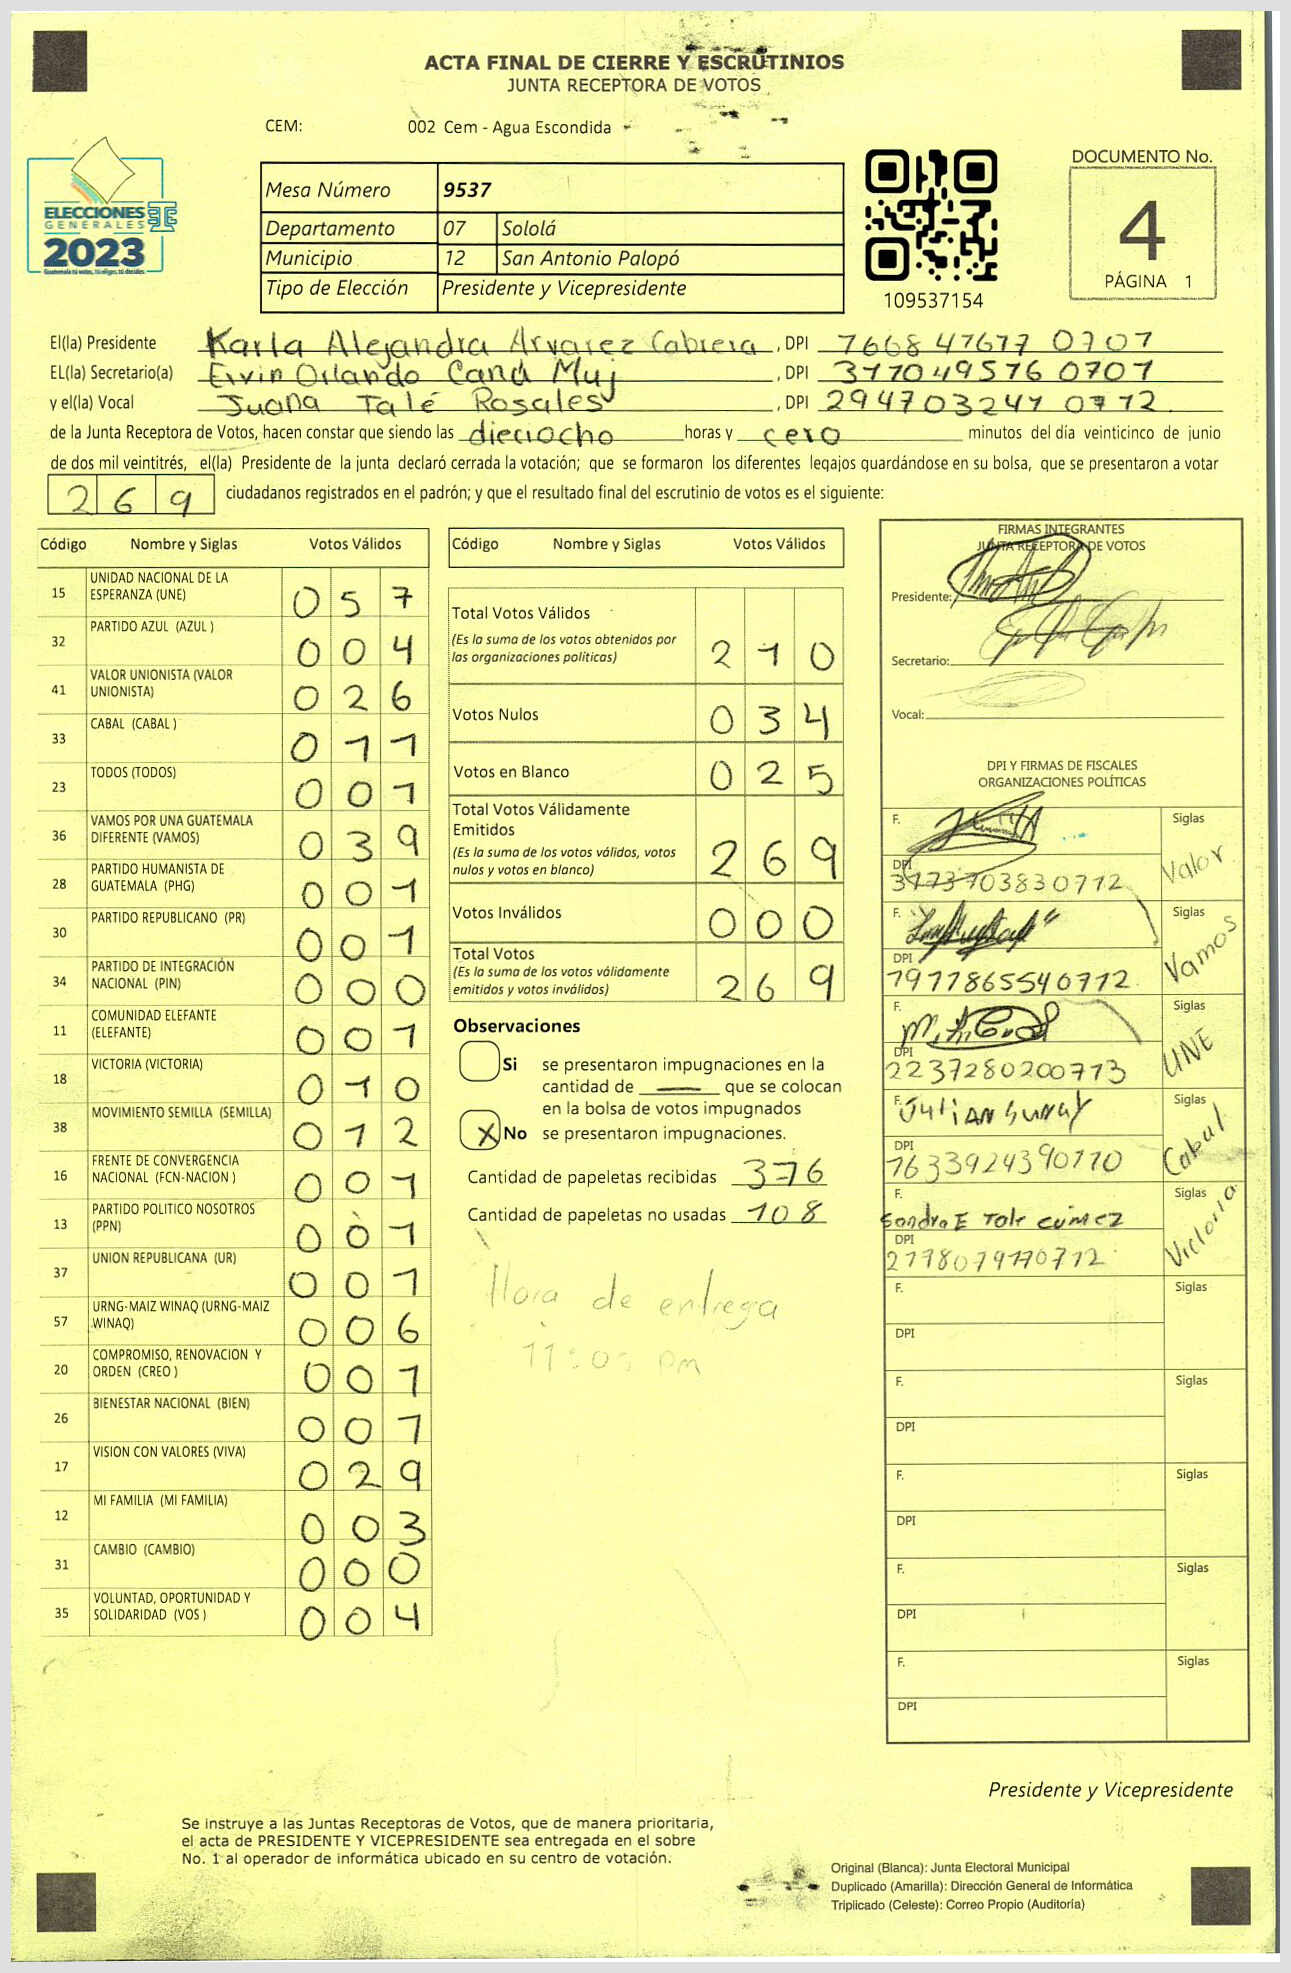 ACTA FINAL DE CIERRE Y ESCRUTINIOS
JUNTA RECEPTORA DE VOTOS
CEM: 002 Cem - Agua Escondida
ELECCIONES
GENERALES
2023
Guatemala tú votas, tú eliges, tú decides.
Mesa Número 9537
Departamento 07 Sololá
Municipio 12 San Antonio Palopó
Tipo de Elección Presidente y Vicepresidente
109537154
DOCUMENTO No.
4
PÁGINA 1
El(la) Presidente Karla Alejandra Alvarez Cabrera, DPI 7668 47677 0707
EL(la) Secretario(a) Ervin Orlando Caná Muj, DPI 317049576 0707
y el(la) Vocal Juana Talé Rosales, DPI 294703241 0712
de la Junta Receptora de Votos, hacen constar que siendo las dieciocho horas y cero minutos del día veinticinco de junio
de dos mil veintitrés, el(la) Presidente de la junta declaró cerrada la votación; que se formaron los diferentes legajos guardándose en su bolsa, que se presentaron a votar
269 ciudadanos registrados en el padrón; y que el resultado final del escrutinio de votos es el siguiente:
Código Nombre y Siglas Votos Válidos
15 UNIDAD NACIONAL DE LA ESPERANZA (UNE) 057
32 PARTIDO AZUL (AZUL ) 004
41 VALOR UNIONISTA (VALOR UNIONISTA) 026
33 CABAL (CABAL ) 011
23 TODOS (TODOS) 001
36 VAMOS POR UNA GUATEMALA DIFERENTE (VAMOS) 039
28 PARTIDO HUMANISTA DE GUATEMALA (PHG) 001
30 PARTIDO REPUBLICANO (PR) 001
34 PARTIDO DE INTEGRACIÓN NACIONAL (PIN) 000
11 COMUNIDAD ELEFANTE (ELEFANTE) 001
18 VICTORIA (VICTORIA) 010
38 MOVIMIENTO SEMILLA (SEMILLA) 012
16 FRENTE DE CONVERGENCIA NACIONAL (FCN-NACION ) 001
13 PARTIDO POLITICO NOSOTROS (PPN) 001
37 UNION REPUBLICANA (UR) 001
57 URNG-MAIZ WINAQ (URNG-MAIZ WINAQ) 006
20 COMPROMISO, RENOVACION Y ORDEN (CREO ) 001
26 BIENESTAR NACIONAL (BIEN) 001
17 VISION CON VALORES (VIVA) 029
12 MI FAMILIA (MI FAMILIA) 003
31 CAMBIO (CAMBIO) 000
35 VOLUNTAD, OPORTUNIDAD Y SOLIDARIDAD (VOS ) 004
Código Nombre y Siglas Votos Válidos
Total Votos Válidos 210
(Es la suma de los votos obtenidos por
las organizaciones políticas)
Votos Nulos 034
Votos en Blanco 025
Total Votos Válidamente
Emitidos 269
(Es la suma de los votos válidos, votos
nulos y votos en blanco)
Votos Inválidos 000
Total Votos 269
(Es la suma de los votos válidamente
emitidos y votos inválidos)
Observaciones
Si se presentaron impugnaciones en la
cantidad de — que se colocan
en la bolsa de votos impugnados
X No se presentaron impugnaciones.
Cantidad de papeletas recibidas 376
Cantidad de papeletas no usadas 108
Hora de entrega
11:05 pm
FIRMAS INTEGRANTES
JUNTA RECEPTORA DE VOTOS
Presidente:
Secretario:
Vocal:
DPI Y FIRMAS DE FISCALES
ORGANIZACIONES POLÍTICAS
F. Siglas Valor
DPI 3173703830712
F. Siglas Vamos
DPI 1977865540712
F. Siglas UNE
DPI 2237280200713
F. Julian Siglas Cabal
DPI 1633924390110
F. Sandra E Tale Cúmez Siglas Victoria
DPI 2178079170712
F. Siglas
DPI
F. Siglas
DPI
F. Siglas
DPI
F. Siglas
DPI
F. Siglas
DPI
Presidente y Vicepresidente
Se instruye a las Juntas Receptoras de Votos, que de manera prioritaria,
el acta de PRESIDENTE Y VICEPRESIDENTE sea entregada en el sobre
No. 1 al operador de informática ubicado en su centro de votación.
Original (Blanca): Junta Electoral Municipal
Duplicado (Amarilla): Dirección General de Informática
Triplicado (Celeste): Correo Propio (Auditoría)